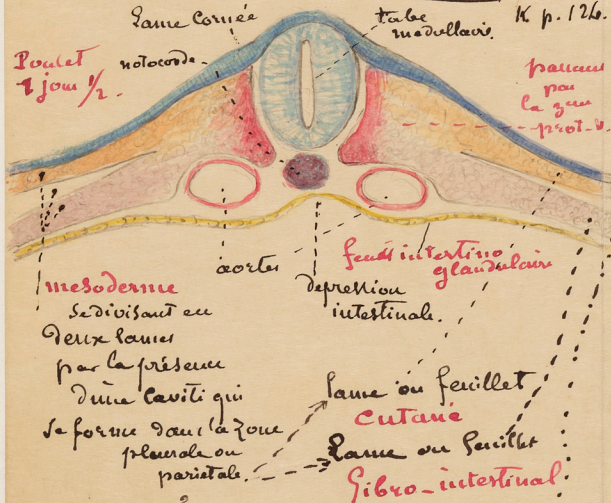 lame cornée
tube
medullaire.
K p. 126.
Poulet
1 jour 1/2.
notocorde.
passant
par
la zone
prot-v.
aortes
feuil intestino
glandulaire
depression
intestinale.
mesoderme
se divisant en
deux lames
par la présence
d'une caviti qui
se forme dans la zone
pleurale ou
parietale.
lame ou feuillet
cutané
Lame ou feuillet
fibro-intestinal